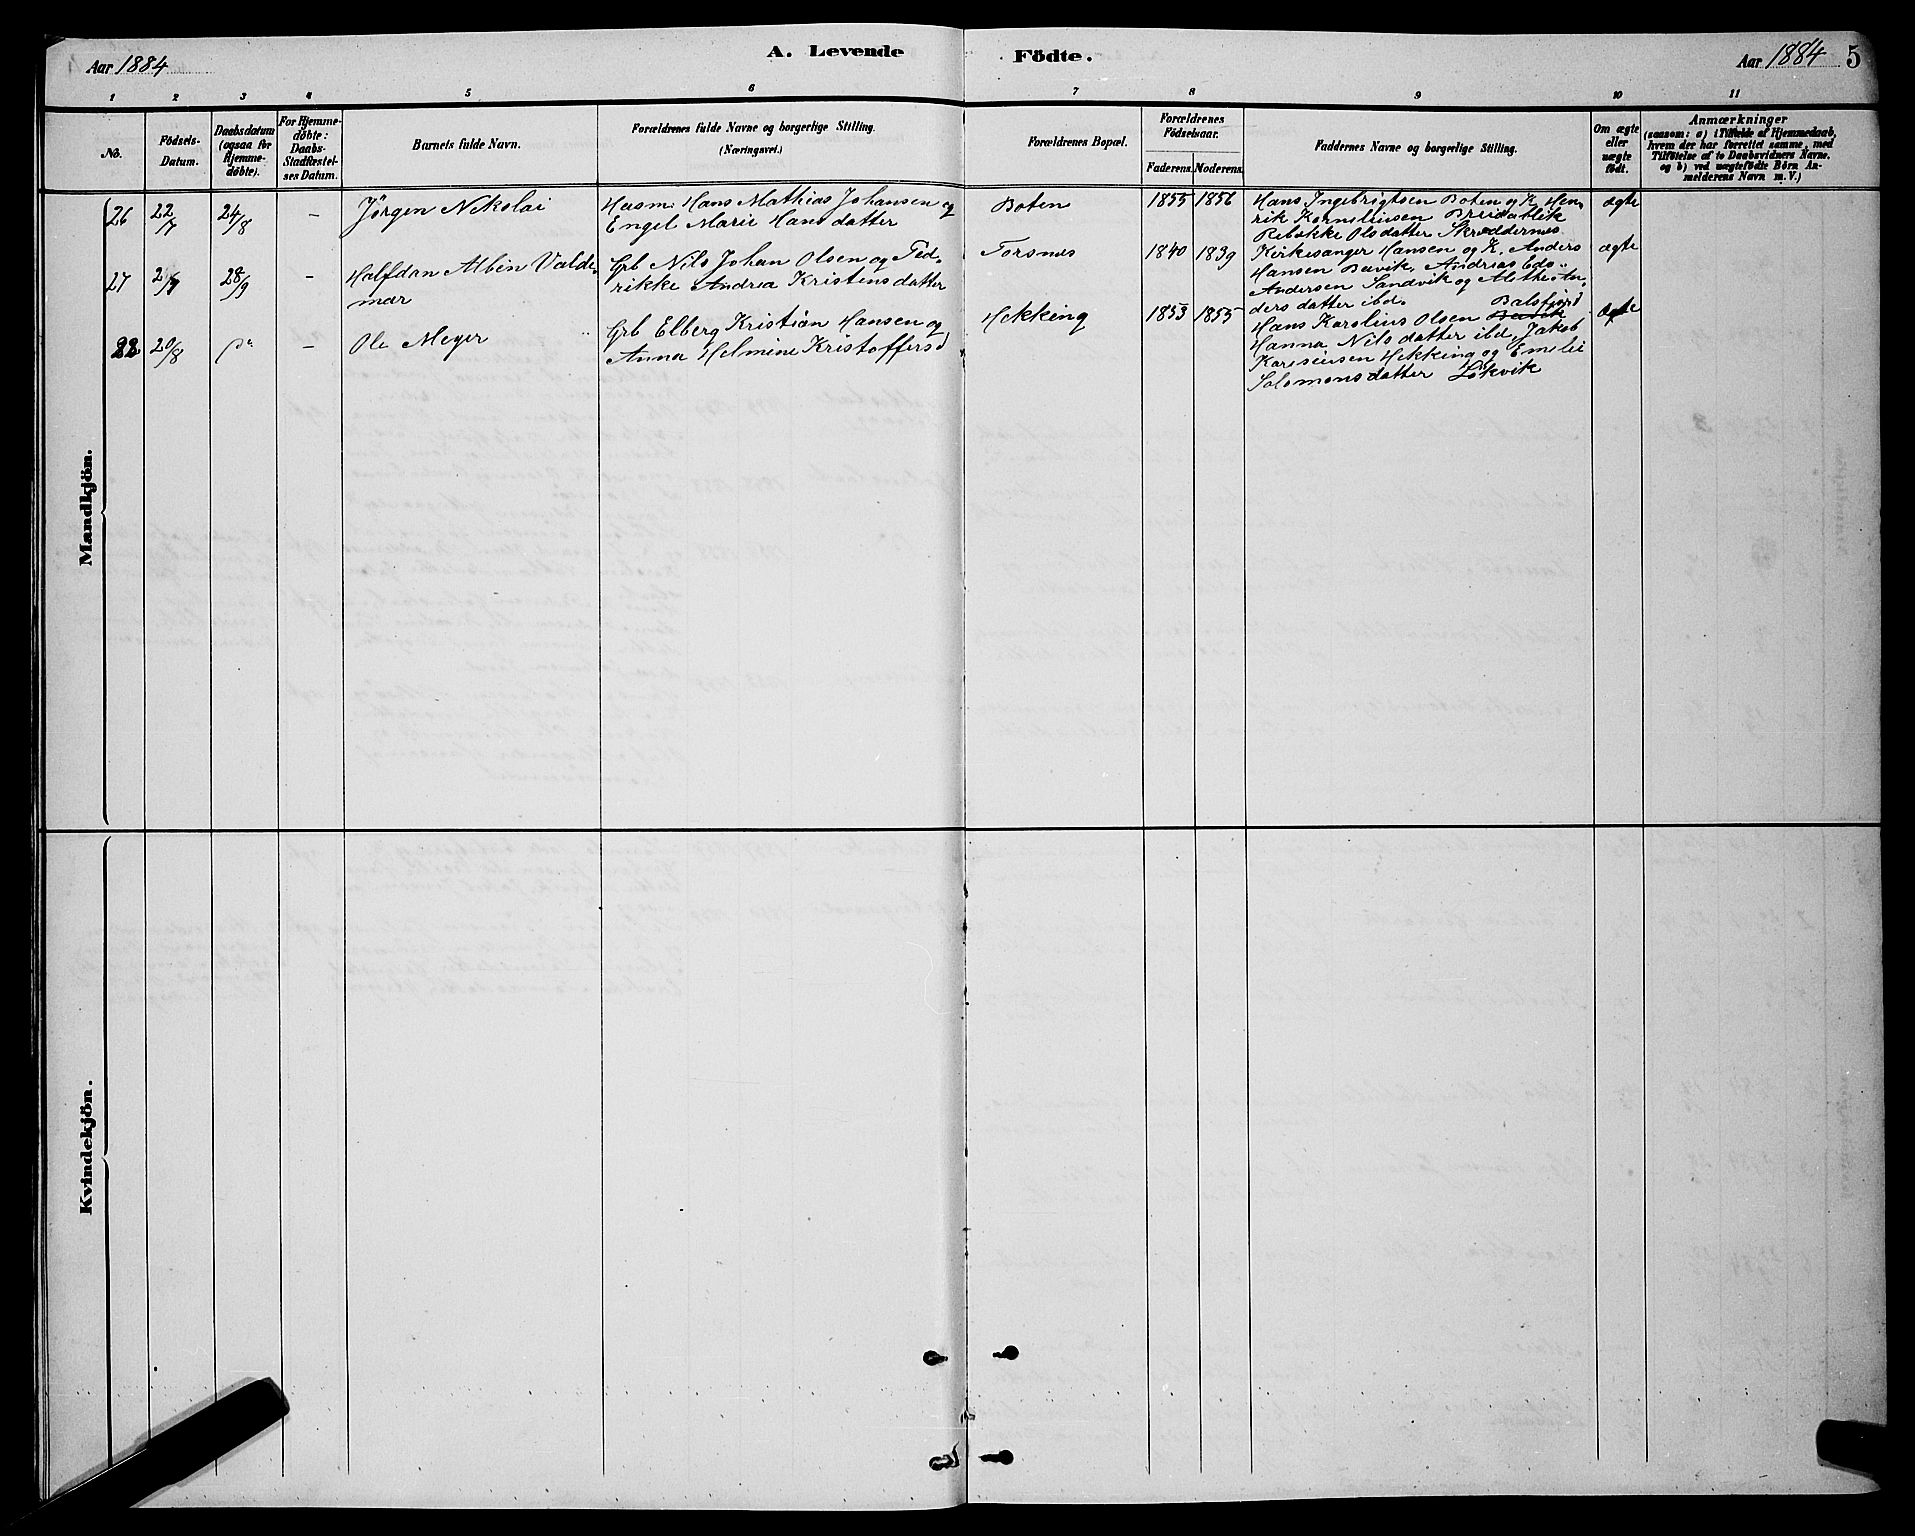 Aar 1884
A. Levende
Fødte.
Aar 1884 5
1 2 3 4 5 6 7 8 9 10 11
No.
Fødsels-
Datum.
Daabsdatum
(ogsaa for
Hjemme-
døbte).
For Hjemme-
døbte:
Daabs-
Stadfæstel-
ses Datum.
Barnets fulde Navn.
Forældrenes fulde Navne og borgerlige Stilling.
(Næringsvei.)
Forældrenes Bopæl.
Forældrenes
Fødselsaar.
Faderens. Moderens.
Faddernes Navne og borgerlige Stilling.
Om ægte
eller
uægte
født.
Anmærkninger
(saasom: a) i Tilfælde af Hjemmedaab,
hvem der har forrettet samme, med
Tilføielse af to Daabsvidners Navne,
og b) ved uægtefødte Børn An-
melderens Navn m. V.)
Mandkjön.
26 22/7 24/8 – Jörgen Nikolai
Husm. Hans Mathias Johansen og
Engel Marie Hansdatter
Boten 1855 1856
Hans Ingebrigtsen Boten og K. Hen-
rik Korneliussen Breidablik
Rebekke Olsdatter Skræddernes
ægte
27 2/7 28/9 – Halfdan Albin Valde-
mar
Grb Nils Johan Olsen og Fed-
rikke Andrea Kristensdatter
Torsnes 1840 1839
Kirkesanger Hansen og K. Anders
Hansen Bævik, Andrias Eds-
Andersen Sandvik og Alethe An-
ders datter ibd.
ægte
28 20/8 – Ole Meyer
Grb Elberg Kristian Hansen og
Anna Helmine Kristoffersd
Hekking 1853 1855
Balsfjord
Hans Karolius Olsen
Hanna Nilsdatter ibd, Jakob
Hekking og Emelie
Salomonsdatter Lökvik
ægte
Kvindekjön.